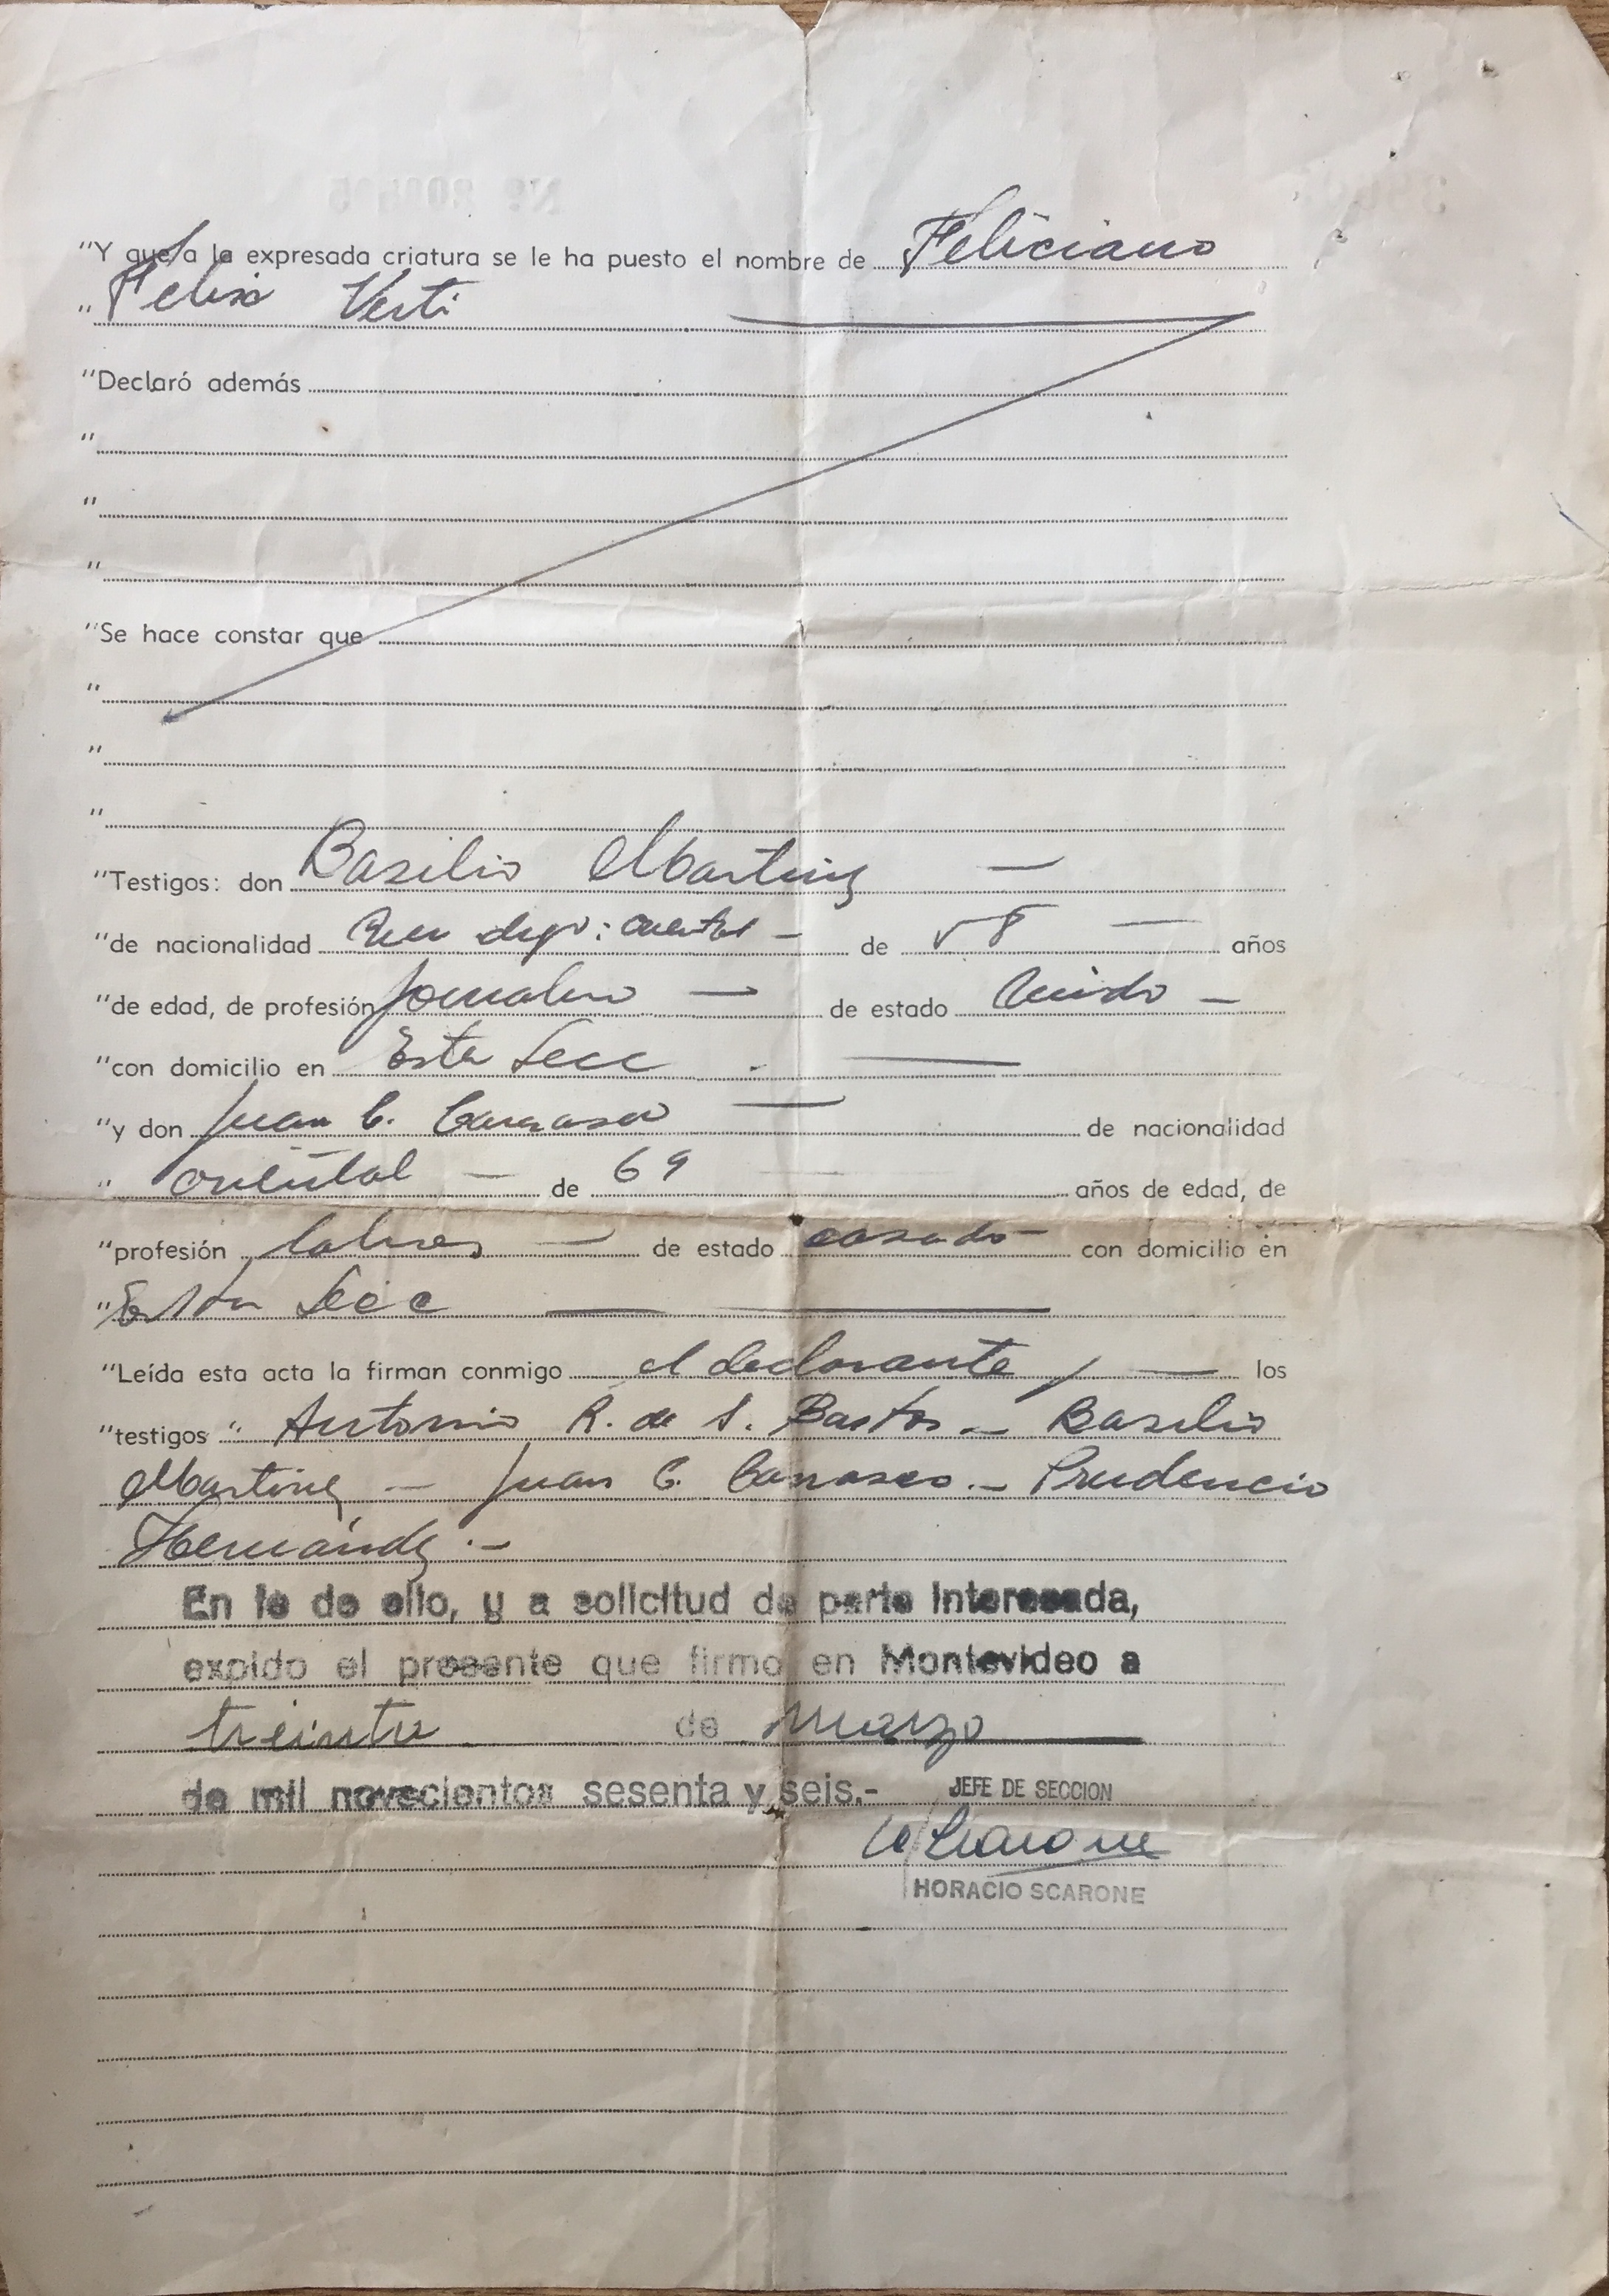 "Y que a la expresada criatura se le ha puesto el nombre de Feliciano
" Felix Verti
"Declaró además
"
"
"
"Se hace constar que
"
"
"
"Testigos: don Basilio Martinez —
"de nacionalidad de 58 — años
"de edad, de profesión Jornalero — de estado —
"con domicilio en Esta Secc . —
"y don Juan C. Carrasco — de nacionalidad
" oriental — de 69 años de edad, de
"profesión labores — de estado casado — con domicilio en
" Esta Secc — —
"Leída esta acta la firman conmigo el declarante y — los
"testigos " Antonio R. de S. Bastos — Basilio
Martinez — Juan C. Carrasco. — Prudencio
Hernández . —
En fe de ello, y a solicitud de parte interesada,
expido el presente que firmo en Montevideo a
treinta de Marzo —
de mil novecientos sesenta y seis.-
JEFE DE SECCION
HORACIO SCARONE